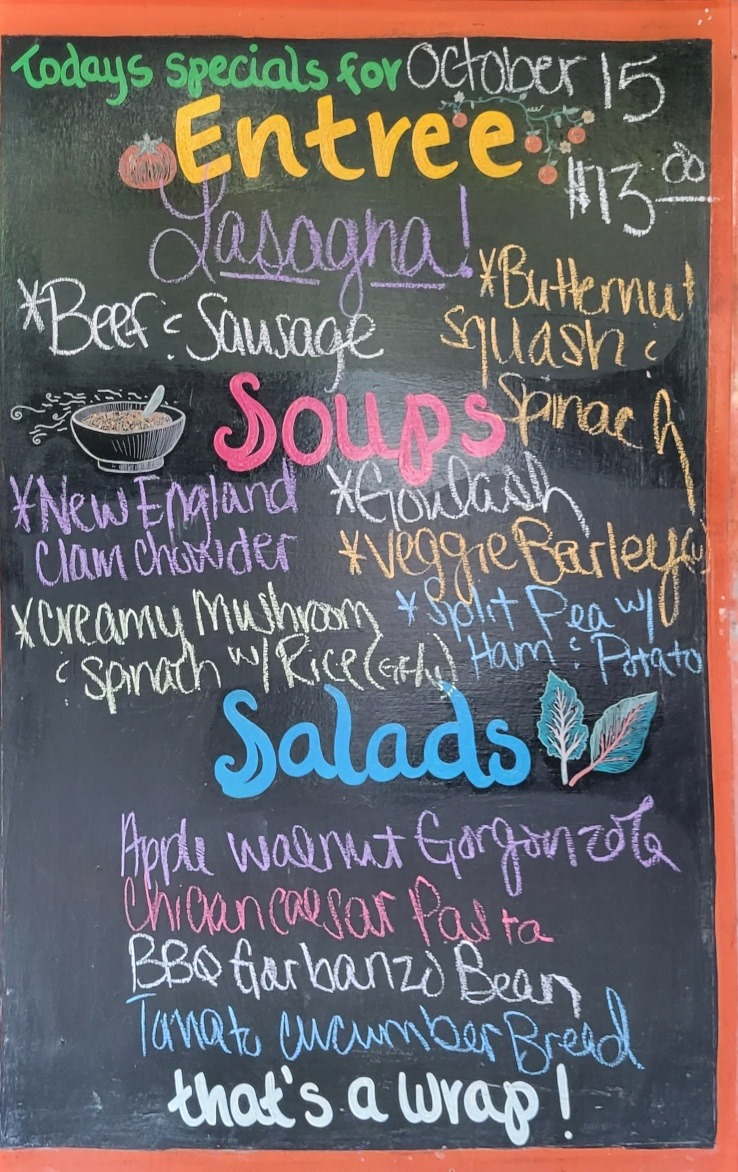 Todays specials for October 15
Entree
$13.00
Lasagna!
*Beef & Sausage
*Butternut
squash &
Spinach
Soups
*New England
Clam chowder
*Goulash
*Veggie Barley (v)
*Creamy Mushroom
& spinach w/ Rice (GF/v)
*Split Pea w/
Ham & Potato
Salads
Apple walnut Gorgonzola
Chickan caesar Pasta
BBQ Garbanzo Bean
Tomato cucumber Bread
that's a wrap!